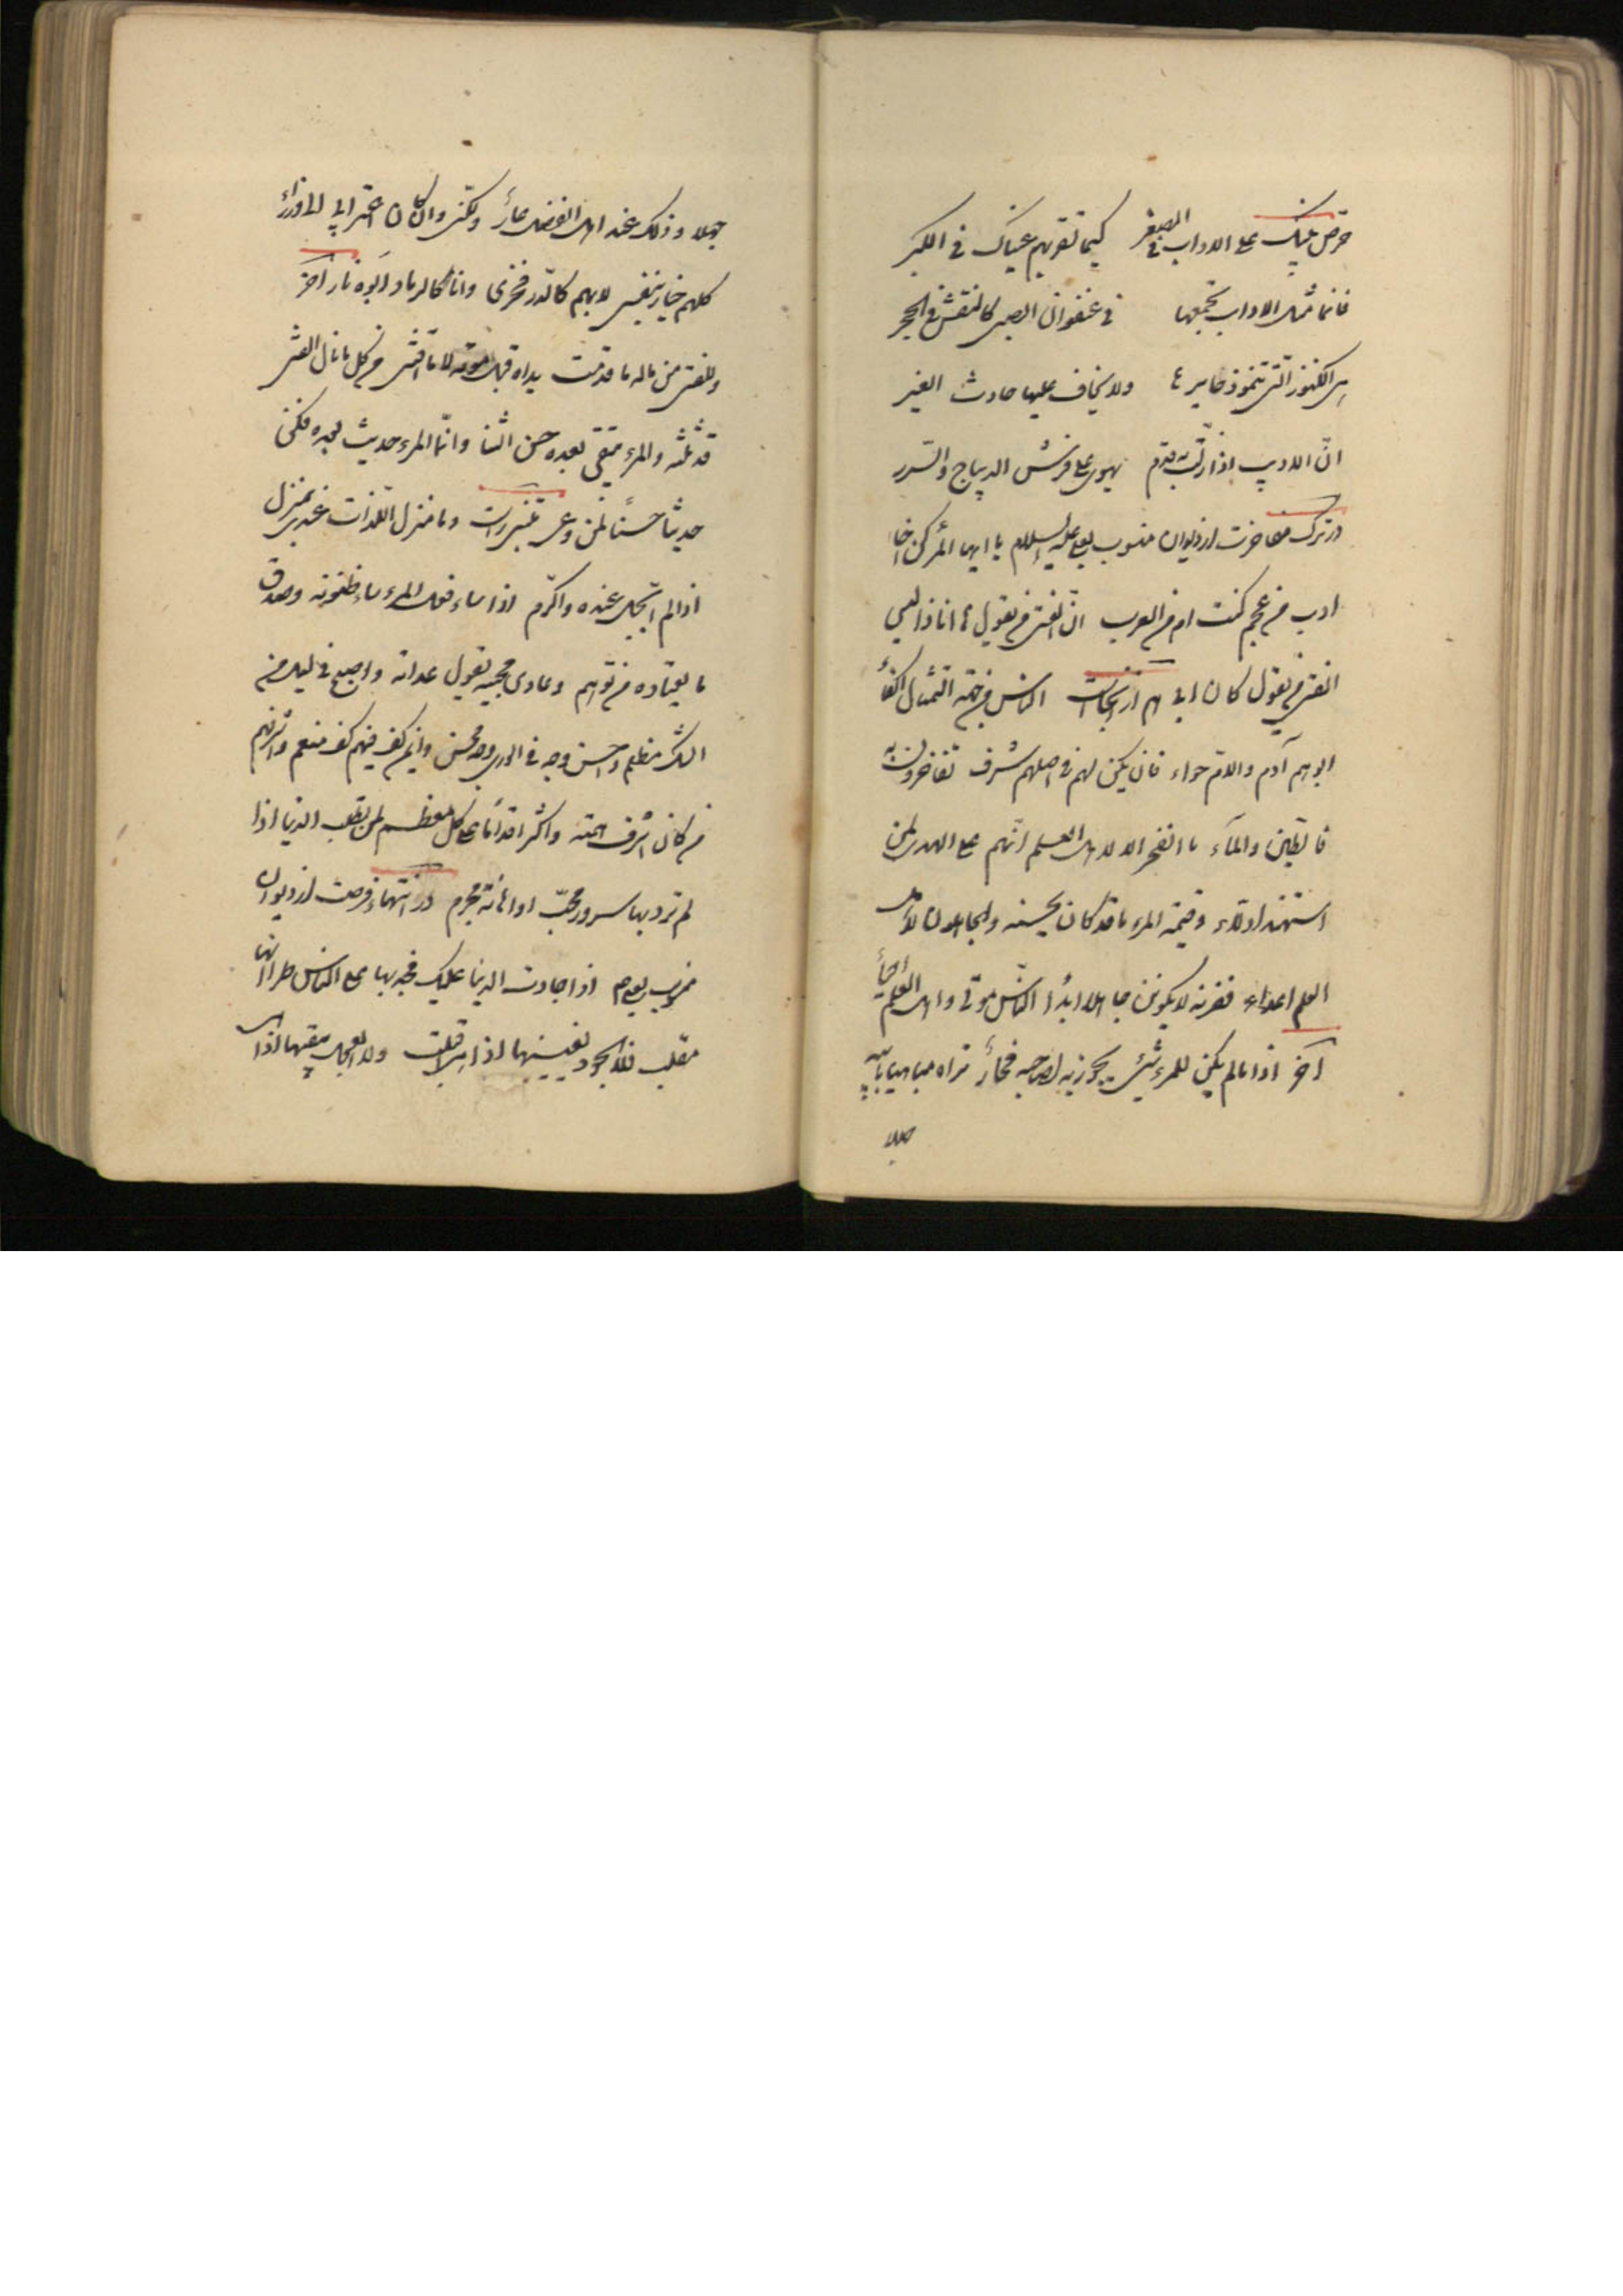 حرّض بنيك على الاداب فى الصغر كيما تقر بهم عيناك فى الكبر
فانما مثل الاداب تجمعها فى عنفوان الصبى كالنقش فى الحجر
هى الكنوز التى تنمو ذخايرها ولا يخاف عليها حادث الغير
انّ الاديب اذا زلّت به قدم يهوى على فرش الديباج والسّرر
در ترك مفاخرت از ديوان منسوب بعلى عليه السلام يا ايها المرء كن اخا
ادب من عجم كنت ام من العرب انّ الفتى من يقول ها انا ذا ليس
الفتى من يقول كان ابى هم از آنجاست الناس من جهة التمثال اكفاء
ابوهم آدم والامّ حواء فان يكن لهم فى اصلهم شرف تفاخرون به
فالطين والمآء ما الفخر الا لاهل العلم انّهم على الهدى لمن
استهدى ادلاء وقيمة المرء ما قد كان يحسنه والجاهلون لاهل
العلم اعداء لا يكونن جاهلا ابدًا النّاس موتى واهل العلم احياء
آخر اذا ما لم يكن للمرء شئ يجوز به لصاحبه فخار تراه مباهيا بابيه
جهلا
جهلا وذلك عند اهل الفضل عار ولكنى وان كان اعتزابى الى
كلهم خيار بنفسى لا بهم كالدّر فخرى وانا كالرماد ابوه نار آخر
وللفتى من ماله ما قدمت يداه قبل موته لا ما اقتنى من كل ما نال الفتى
قد نلته والمرء يبقى بعده حسن الثنا وانّما المرء حديث بعده فكن
حديثا حسنًا لمن وعى وما منزل اللّذات عندى بمنزل
اذا لم ابجّل عنده واكرّم اذا ساء فعل المرء ساء ظنونه وصدق
ما يعتاده من توهم وعادى محبيه بقول عداته واصبح فى ليل من
الشك مظلم واحسن وجه فى الورى وجه محسن وايمن كف فيهم كف منعم واشرفهم
من كان اشرف همّة واكثر اقدامًا على كل معظم لمن يطلب الدنيا اذا
لم ترد بها سرور محبّ او اهانة مجرم در انتهاء فرصت از ديوان
منسوب بعلى م اذا جادت الدنيا عليك فجد بها على الناس طرا انها
تقلب فلا الجود يفنيها اذا هى اقبلت ولا البخل يبقيها اذا هى